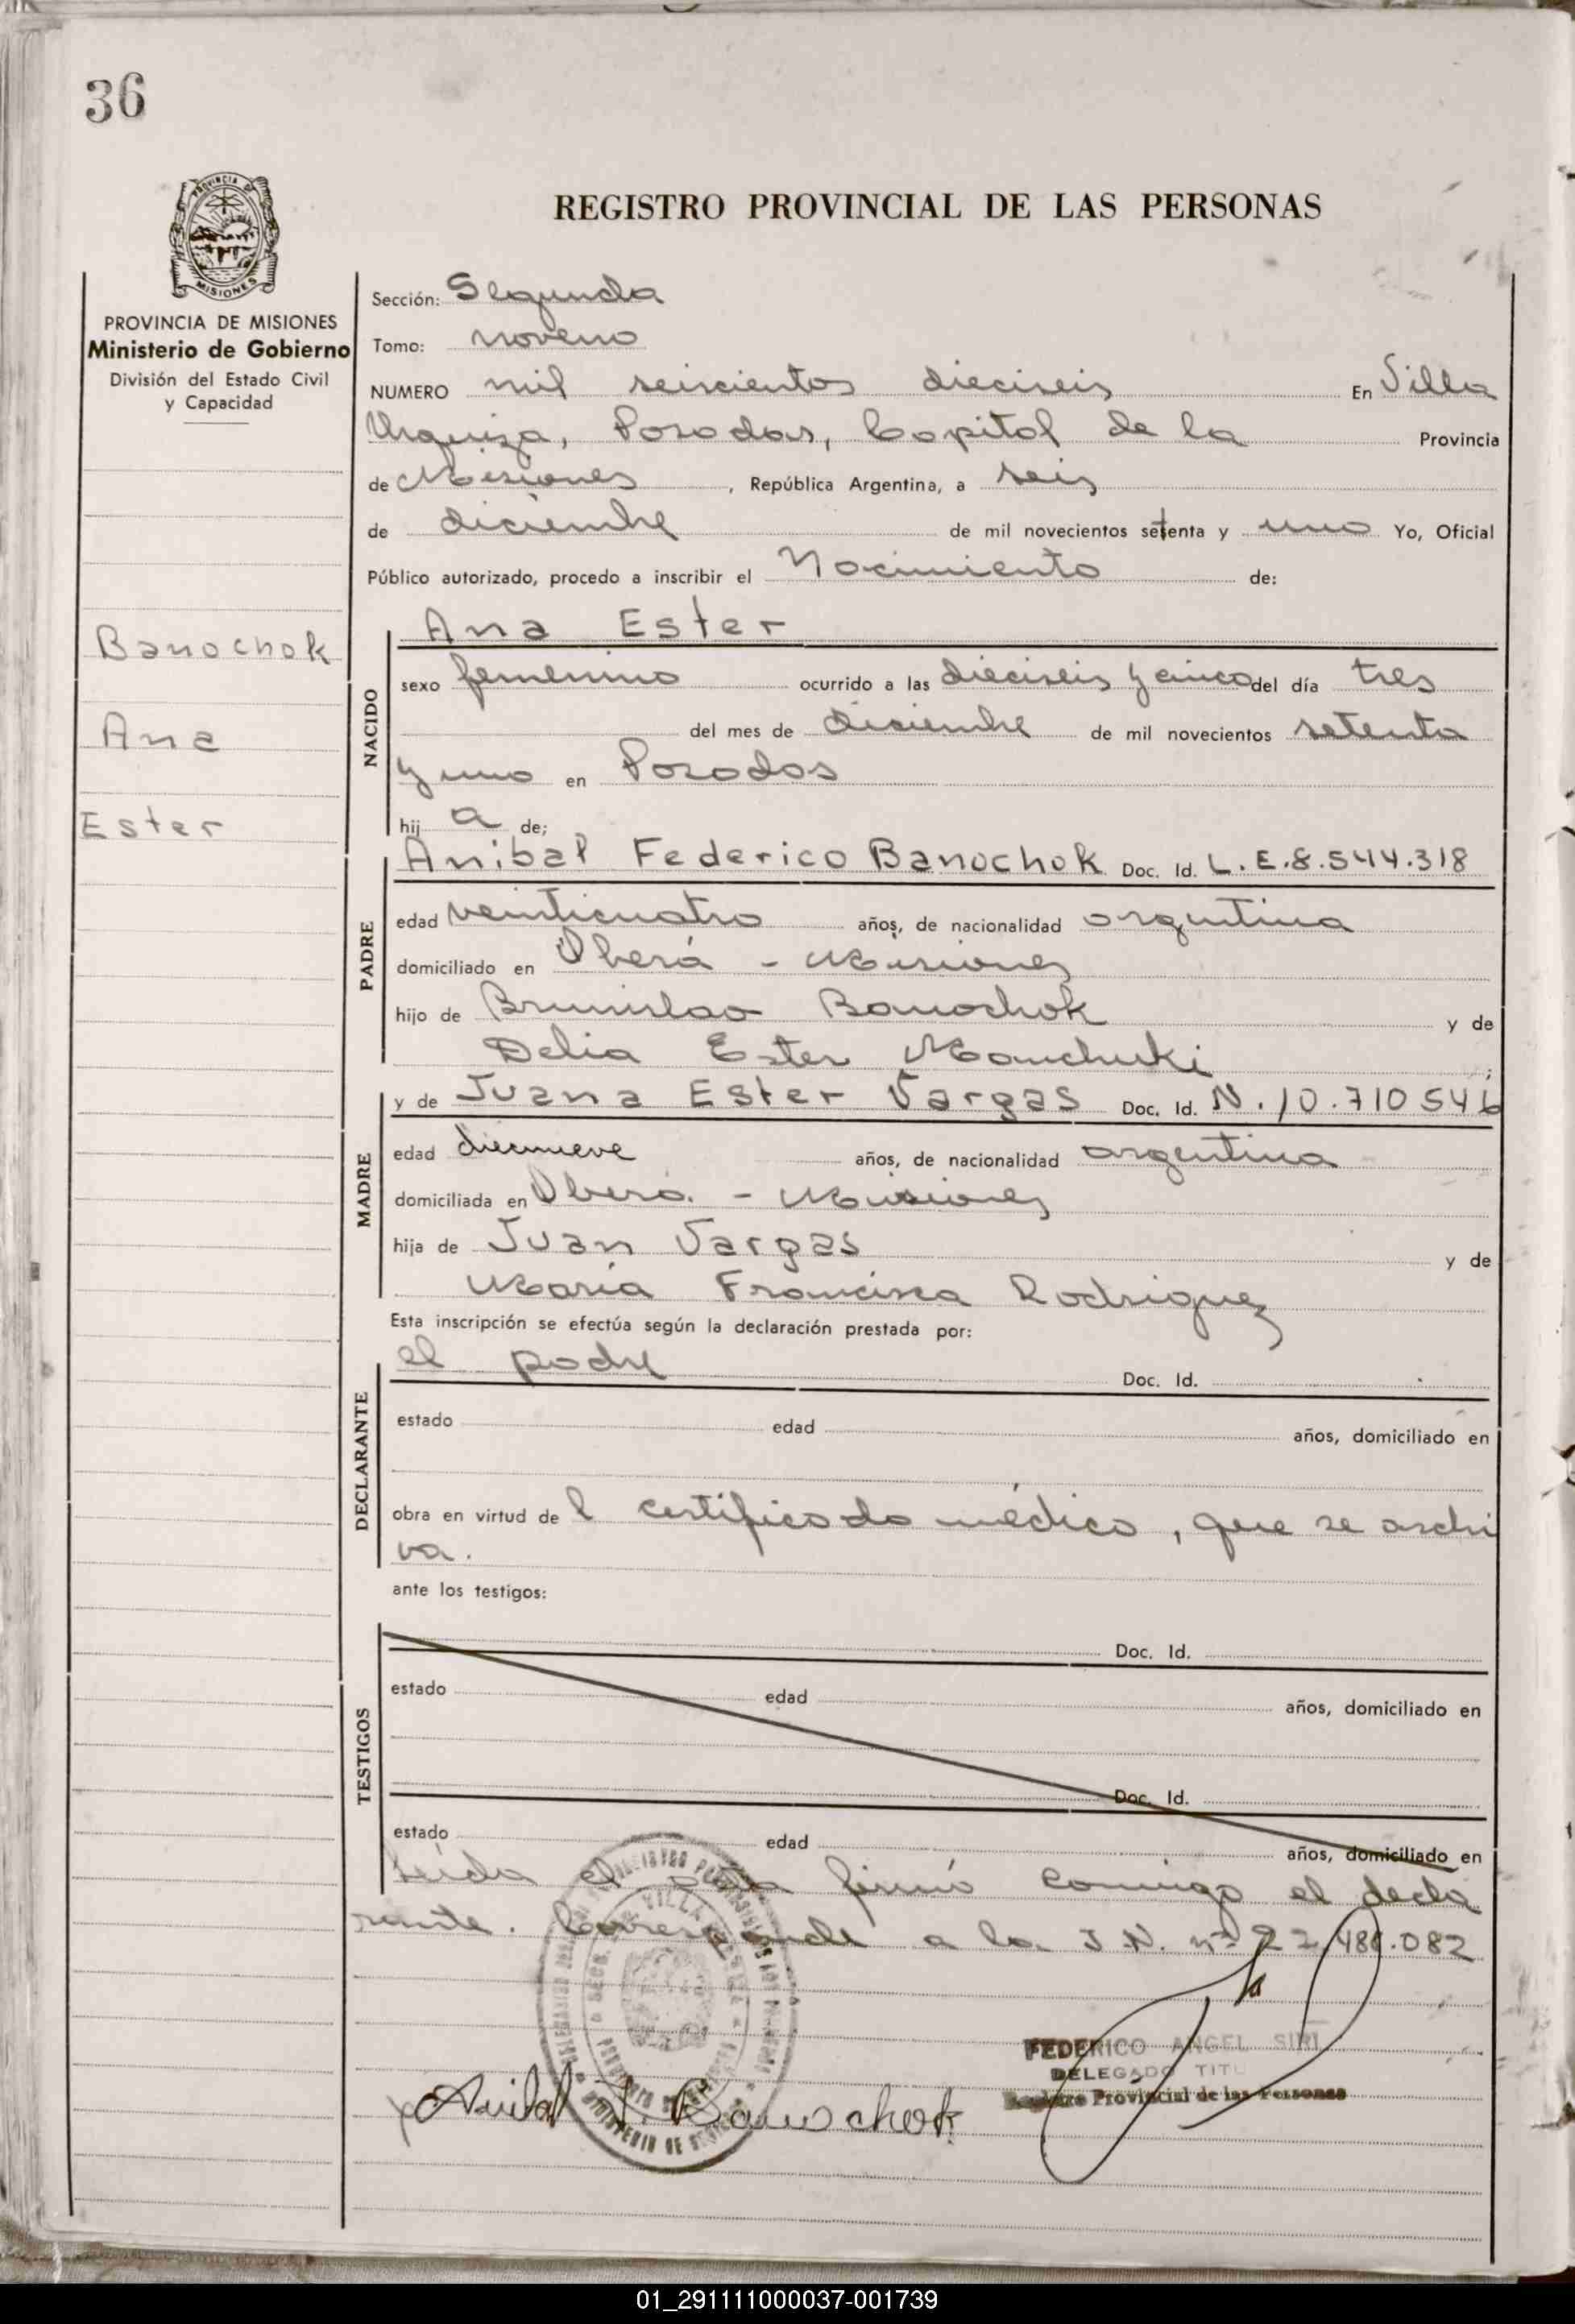 36
PROVINCIA DE
MISIONES
REGISTRO PROVINCIAL DE LAS PERSONAS
PROVINCIA DE MISIONES
Ministerio de Gobierno
División del Estado Civil
y Capacidad
Banochok
Ana
Ester
Sección: Segunda
Tomo: noveno
NUMERO mil seiscientos dieciseis En Villa
Urquiza, Posadas, Capital de la Provincia
de Misiones, República Argentina, a seis
de diciembre de mil novecientos setenta y uno Yo, Oficial
Público autorizado, procedo a inscribir el Nacimiento de:
NACIDO
Ana Ester
sexo femenino ocurrido a las dieciseis y cinco del día tres
del mes de diciembre de mil novecientos setenta
y uno en Posadas
hij a de;
PADRE
Anibal Federico Banochok Doc. Id. L.E.8.544.318
edad veinticuatro años, de nacionalidad argentina
domiciliado en Oberá - Misiones
hijo de Brunislao Banochok y de
Delia Ester Manchuki ;
MADRE
y de Juana Ester Vargas Doc. Id. N.10.710546
edad diecinueve años, de nacionalidad argentina
domiciliada en Oberá. - Misiones
hija de Juan Vargas y de
María Francisca Rodriguez
Esta inscripción se efectúa según la declaración prestada por:
DECLARANTE
el padre Doc. Id.
estado edad años, domiciliado en
obra en virtud de l certificado médico, que se archi
va.
ante los testigos:
TESTIGOS
Doc. Id.
estado edad años, domiciliado en
Doc. Id.
estado edad años, domiciliado en
Leída el acta firmó conmigo el decla
rante. Corresponde a la I.N. nº 22.486.082
FEDERICO ANGEL SIRI
DELEGADO TITU
Registro Provincial de las Personas
Anibal F. Banochok
01_291111000037-001739